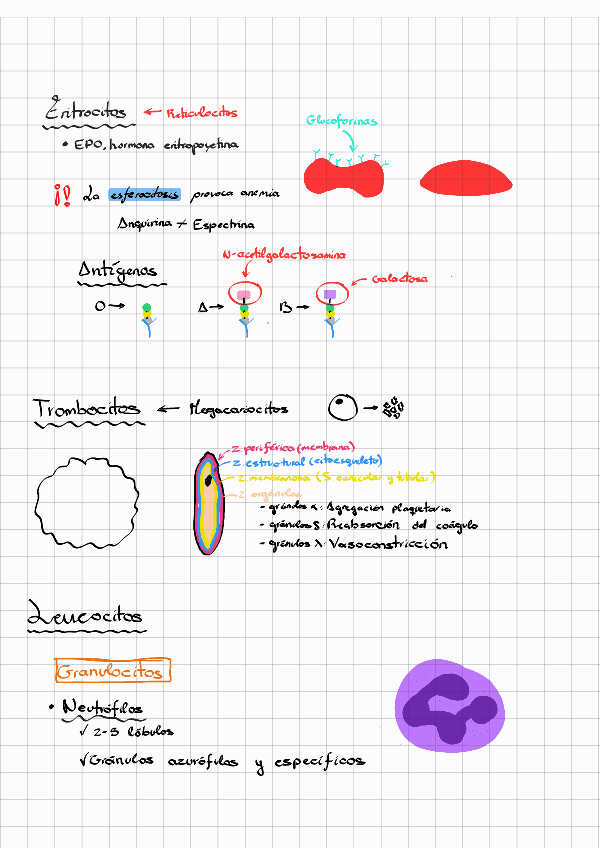 Eritrocitos ← Reticulocitos
• EPO, hormona eritropoyetina
Glucoforinas
¡! La esferocitosis provoca anemia
Anquirina ≁ Espectrina
Antígenos
N-acetilgalactosamina
Galactosa
O → A → B →
Trombocitos ← Megacariocitos
Z. periférica (membrana)
Z. estructural (citoesqueleto)
Z membranosa (S. canicular y tubular)
Z orgánulos
- gránulos α: Agregación plaquetaria
- gránulos δ: Reabsorción del coágulo
- gránulos λ: Vasoconstricción
Leucocitos
Granulocitos
• Neutrófilos
✓ 2-5 lóbulos
✓ Gránulos azurófilos y específicos